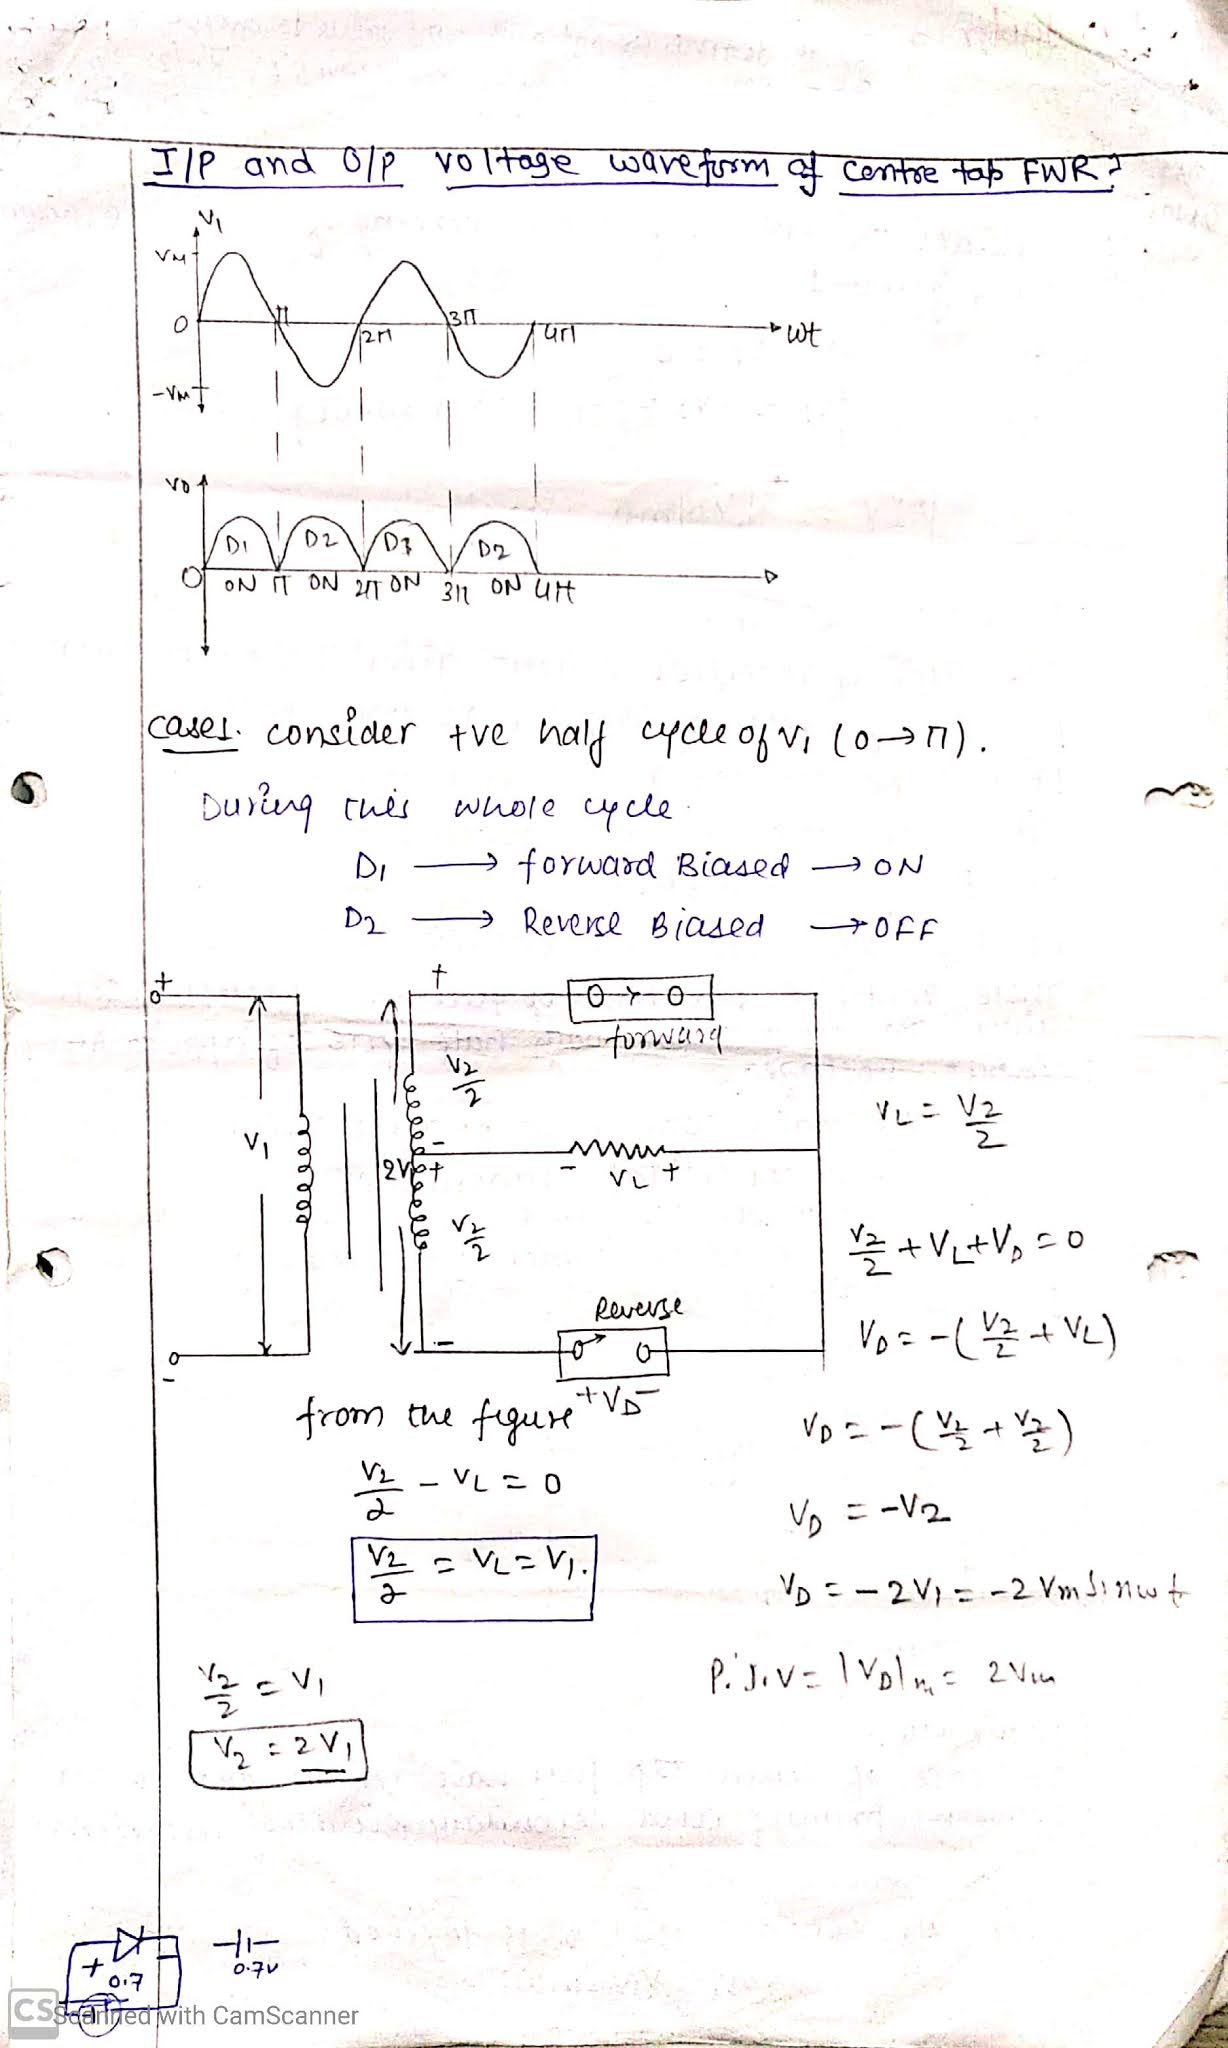 I/P and O/P voltage waveform of centre tap FWR?
V1
VM
0
-VM
π
2π
3π
4π
wt
VO
D1 D2 D3 D2
0 ON π ON 2π ON 3π ON 4π
Case1. consider +ve half cycle of V1 (0→π).
During this whole cycle
D1 → forward Biased → ON
D2 → Reverse Biased → OFF
+ +
forward
V2/2
VL = V2/2
V1
- +
- VL +
V2/2
V2/2 + VL + VD = 0
Reverse
VD = -(V2/2 + VL)
- -
+ VD -
from the figure
VD = -(V2/2 + V2/2)
V2/2 - VL = 0
VD = -V2
V2/2 = VL = V1.
VD = -2V1 = -2 Vm Sinwt
V2/2 = V1
P.I.V = |VD|m = 2Vm
V2 = 2V1
+ 0.7
0.7V
CS Scanned with CamScanner